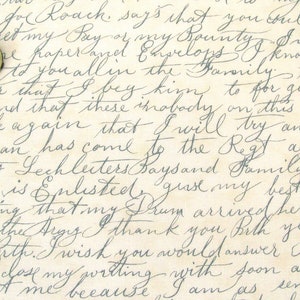 go Roach. says that you could
my Pay or my Bounty I
paper and Envelops I know
to you all in the Family
that I beg him to for giv
and that there is nobody on this
again that I will try an
has come to the Regt a
Lechleiters Boys and Family
is Enlisted, give my bes
ing that my Drum arrived he
the Regt I thank you Both yo
I wish you would answer
close my writing with soon a
at me because I am as ser